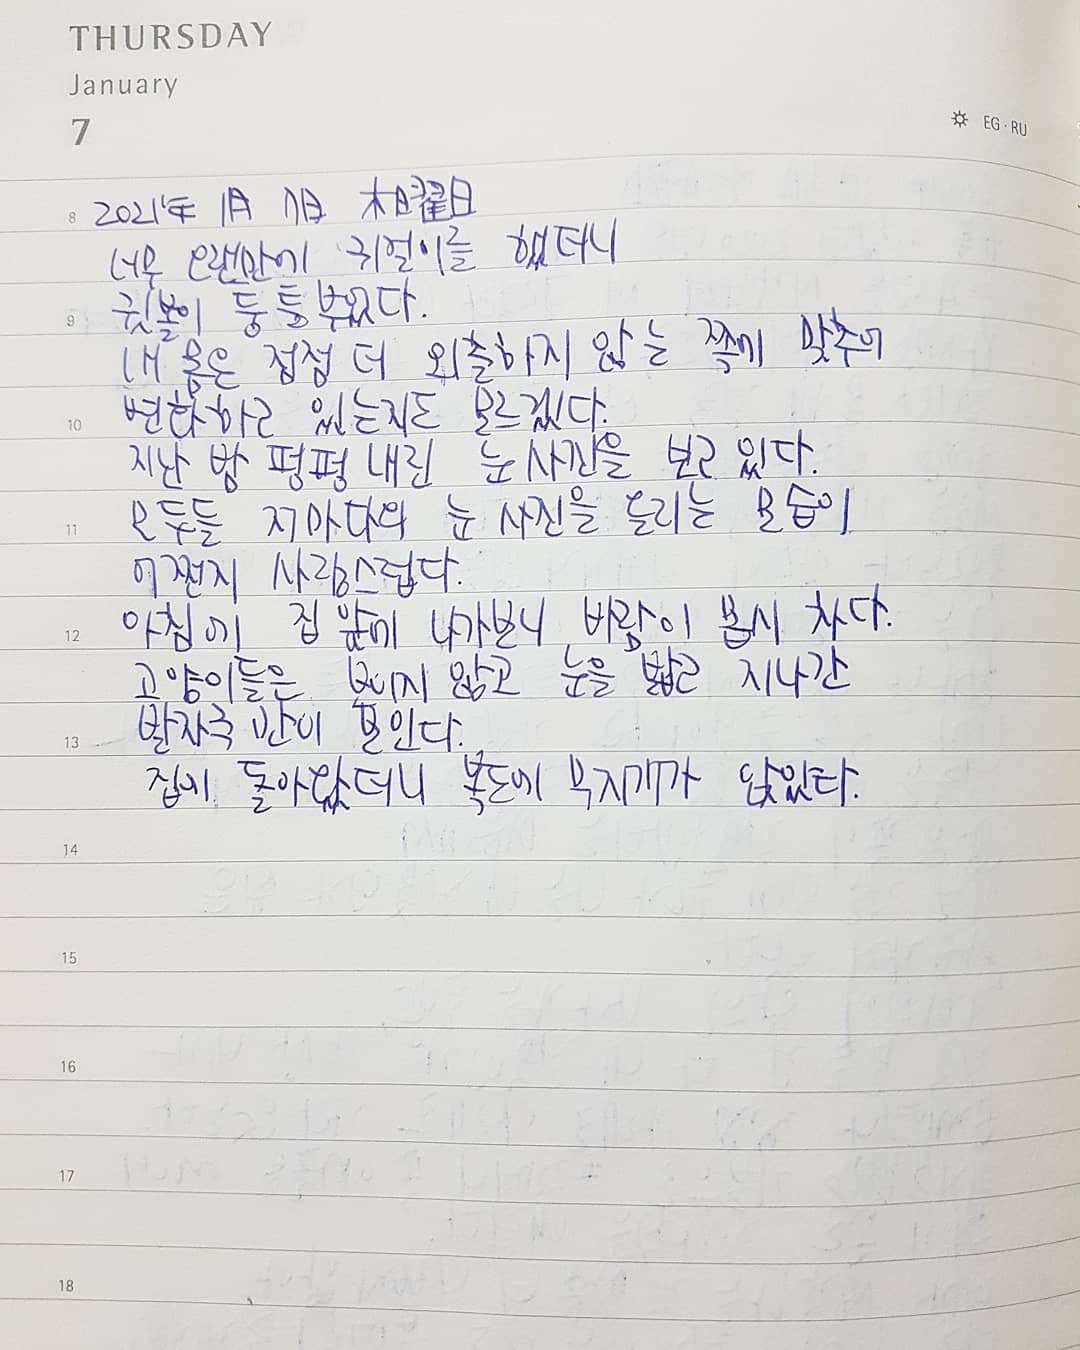 THURSDAY
January
7
EG · RU
8 2021年 1月 7日 木曜日
너무 오랜만에 귀걸이를 했더니
9 귓볼이 퉁퉁 부었다.
내 몸은 점점 더 외출하지 않는 쪽에 맞추어
10 변화하고 있는지도 모르겠다.
지난 밤 펑펑 내린 눈 사진을 보고 있다.
11 모두들 저마다의 눈 사진을 올리는 모습이
어쩐지 사랑스럽다.
12 아침에 집 앞에 나가보니 바람이 몹시 차다.
고양이들은 보이지 않고 눈을 밟고 지나간
13 발자국 만이 보인다.
집에 돌아왔더니 복도에 무지개가 앉았다.
14
15
16
17
18